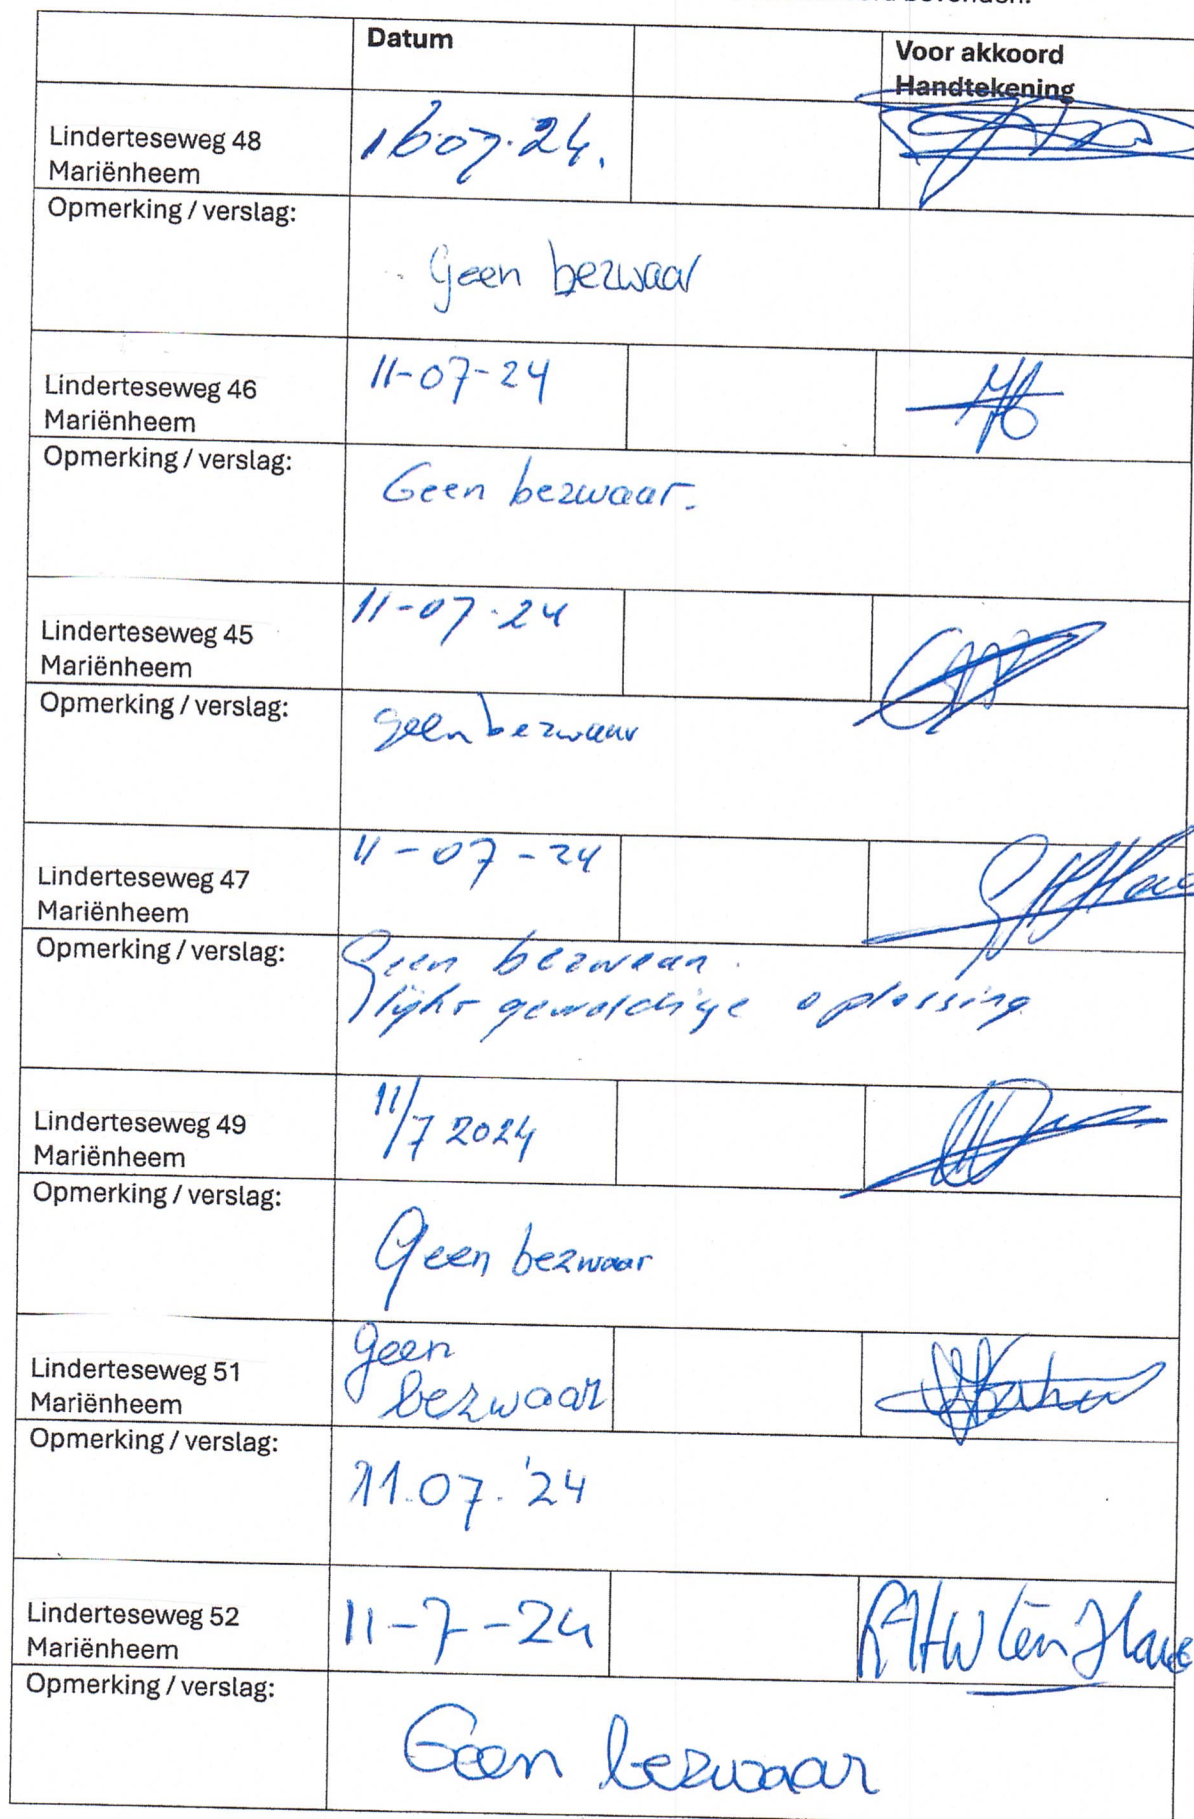 Datum
Voor akkoord
Handtekening
Linderteseweg 48
Mariënheem
16 07.24.
Opmerking / verslag:
geen bezwaar
Linderteseweg 46
Mariënheem
11-07-24
Opmerking / verslag:
Geen bezwaar.
Linderteseweg 45
Mariënheem
11-07-24
Opmerking / verslag:
geen bezwaar
Linderteseweg 47
Mariënheem
11-07-24
Opmerking / verslag:
Geen bezwaar.
lijkt geweldige oplossing
Linderteseweg 49
Mariënheem
11/7 2024
Opmerking / verslag:
Geen bezwaar
Linderteseweg 51
Mariënheem
geen
bezwaar
Opmerking / verslag:
11.07.'24
Linderteseweg 52
Mariënheem
11-7-24
ten Have
Opmerking / verslag:
Geen bezwaar